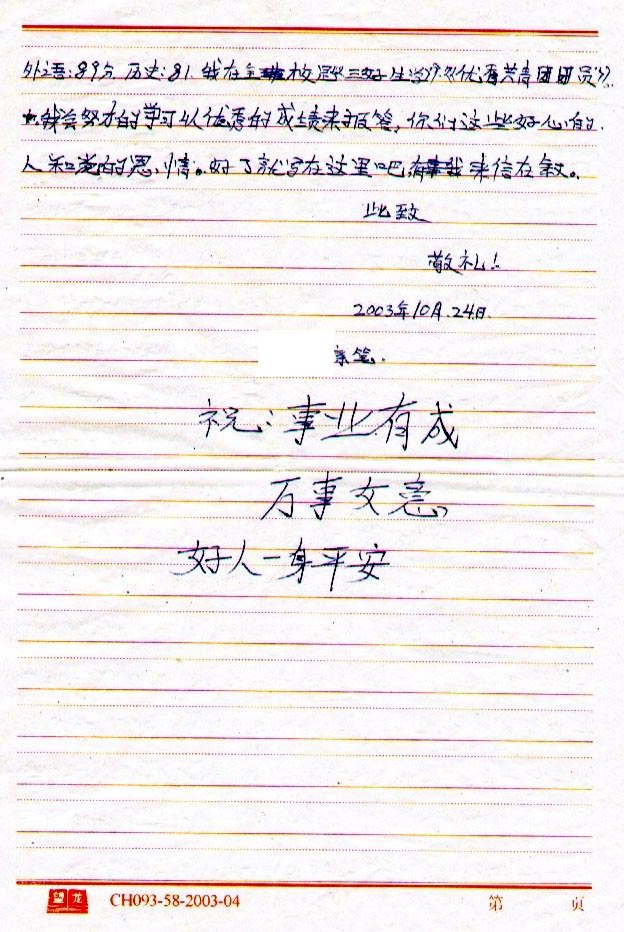 外语:89分 历史:81. 我在全校冠三好生学"优秀共青团团员"
我会努力的学习以优秀的成绩来报答,你们这些好心的.
人和党的恩情。好了就写在这里吧,有来信在叙。
此致
敬礼!
2003年10月.24日.
亲笔.
祝:事业有成
万事如意
好人一身平安
望龙 CH093-58-2003-04 第 页